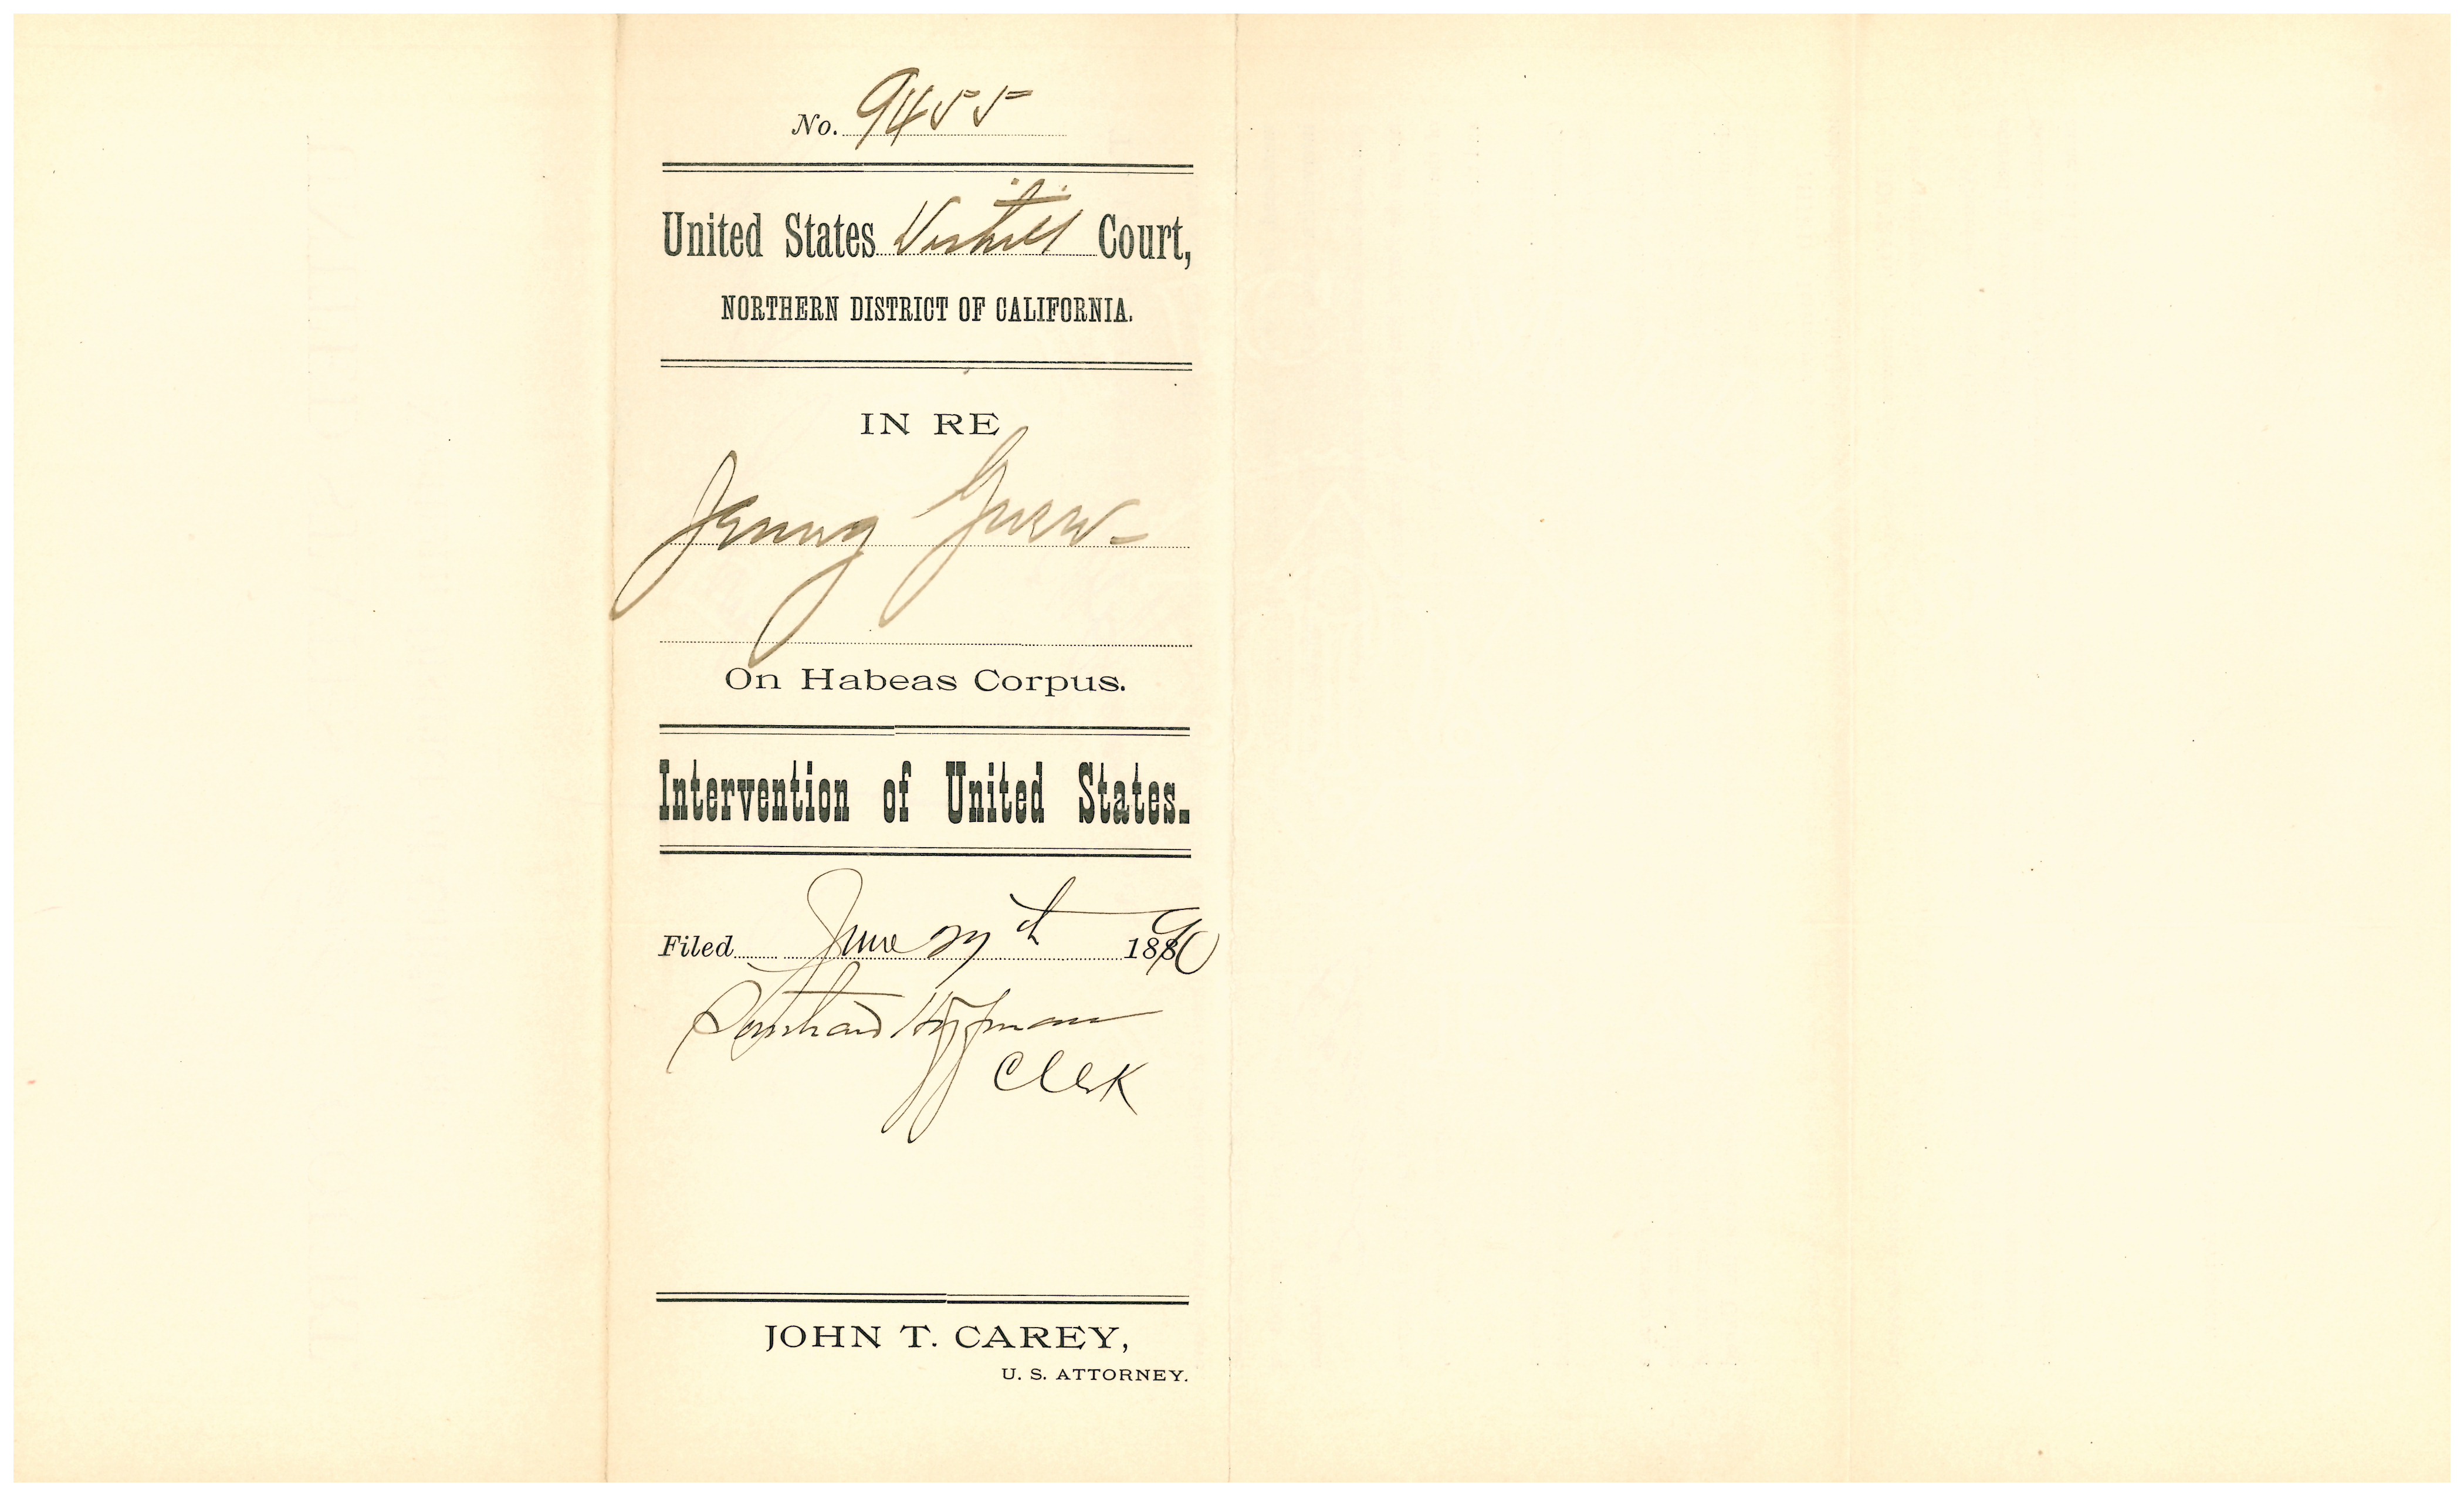 No. 9455
United States District Court,
NORTHERN DISTRICT OF CALIFORNIA.
IN RE
On Habeas Corpus.
Intervention of United States.
Filed June 27th 1890
Southard Hoffman
Clerk
JOHN T. CAREY,
U. S. ATTORNEY.